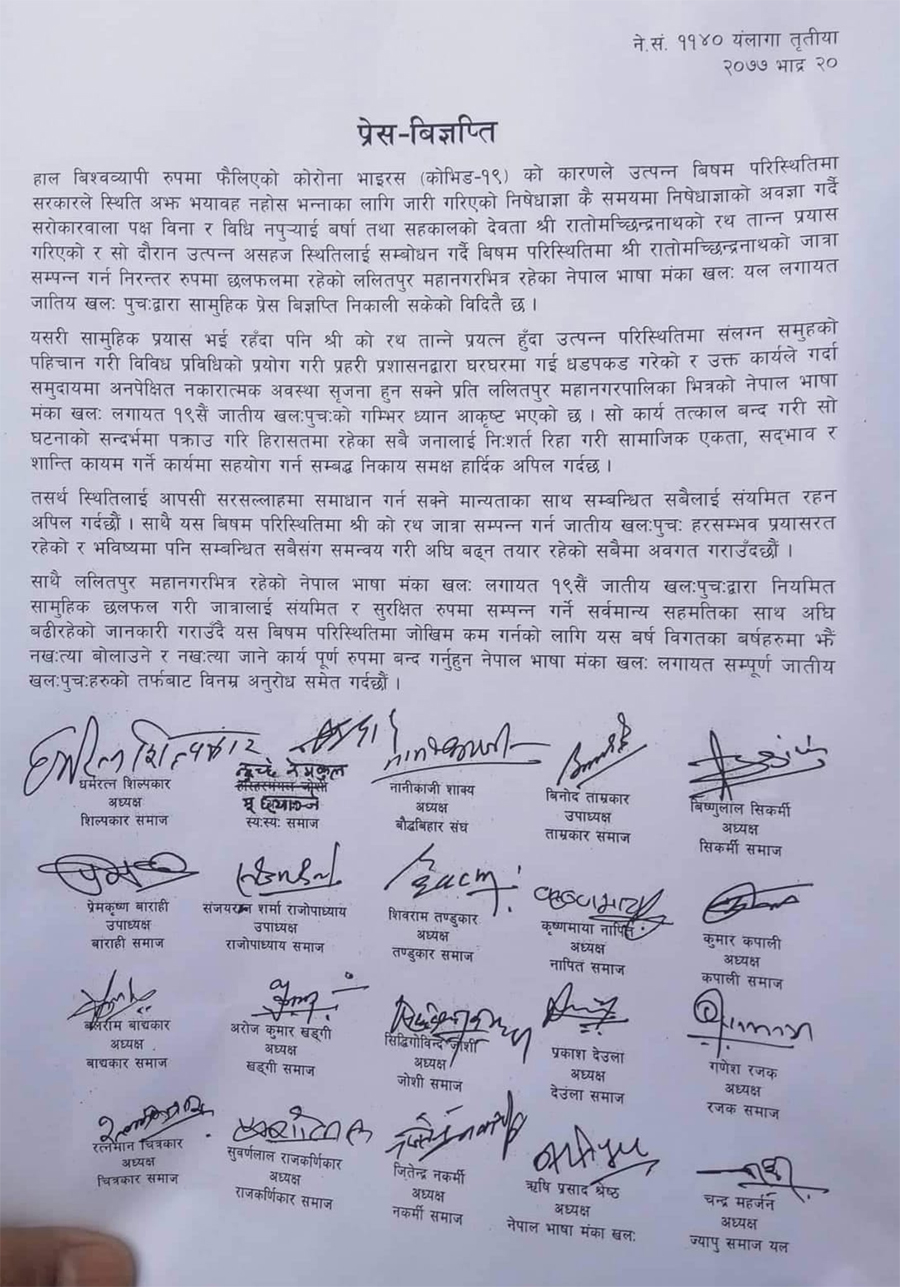 ने.सं. ११४० यंलागा तृतीया
२०७७ भाद्र २०
प्रेस-बिज्ञप्ति
हाल बिश्वव्यापी रुपमा फैलिएको कोरोना भाइरस (कोभिड-१९) को कारणले उत्पन्न बिषम परिस्थितिमा
सरकारले स्थिति अझ भयावह नहोस भन्नाका लागि जारी गरिएको निषेधाज्ञा कै समयमा निषेधाज्ञाको अवज्ञा गर्दै
सरोकारवाला पक्ष विना र विधि नपुर्‍याई बर्षा तथा सहकालको देवता श्री रातोमच्छिन्द्रनाथको रथ तान्न प्रयास
गरिएको र सो दौरान उत्पन्न असहज स्थितिलाई सम्बोधन गर्दै बिषम परिस्थितिमा श्री रातोमच्छिन्द्रनाथको जात्रा
सम्पन्न गर्न निरन्तर रुपमा छलफलमा रहेको ललितपुर महानगरभित्र रहेका नेपाल भाषा मंका खलः यल लगायत
जातिय खलः पुचःद्वारा सामुहिक प्रेस बिज्ञप्ति निकाली सकेको विदितै छ ।
यसरी सामुहिक प्रयास भई रहँदा पनि श्री को रथ तान्ने प्रयत्न हुँदा उत्पन्न परिस्थितिमा संलग्न समुहको
पहिचान गरी विविध प्रविधिको प्रयोग गरी प्रहरी प्रशासनद्वारा घरघरमा गई धडपकड गरेको र उक्त कार्यले गर्दा
समुदायमा अनपेक्षित नकारात्मक अवस्था सृजना हुन सक्ने प्रति ललितपुर महानगरपालिका भित्रको नेपाल भाषा
मंका खलः लगायत १९सैं जातीय खलःपुचःको गम्भिर ध्यान आकृष्ट भएको छ । सो कार्य तत्काल बन्द गरी सो
घटनाको सन्दर्भमा पक्राउ गरि हिरासतमा रहेका सबै जनालाई निःशर्त रिहा गरी सामाजिक एकता, सद्‌भाव र
शान्ति कायम गर्ने कार्यमा सहयोग गर्न सम्बद्ध निकाय समक्ष हार्दिक अपिल गर्दछ ।
तसर्थ स्थितिलाई आपसी सरसल्लाहमा समाधान गर्न सक्ने मान्यताका साथ सम्बन्धित सबैलाई संयमित रहन
अपिल गर्दछौं । साथै यस बिषम परिस्थितिमा श्री को रथ जात्रा सम्पन्न गर्न जातीय खलःपुचः हरसम्भव प्रयासरत
रहेको र भविष्यमा पनि सम्बन्धित सबैसंग समन्वय गरी अघि बढ्न तयार रहेको सबैमा अवगत गराउँदछौं ।
साथै ललितपुर महानगरभित्र रहेको नेपाल भाषा मंका खलः लगायत १९सैं जातीय खलःपुचःद्वारा नियमित
सामुहिक छलफल गरी जात्रालाई संयमित र सुरक्षित रुपमा सम्पन्न गर्ने सर्वमान्य सहमतिका साथ अघि
बढीरहेको जानकारी गराउँदै यस बिषम परिस्थितिमा जोखिम कम गर्नको लागि यस बर्ष विगतका बर्षहरुमा झैं
नखःत्या बोलाउने र नखःत्या जाने कार्य पूर्ण रुपमा बन्द गर्नुहुन नेपाल भाषा मंका खलः लगायत सम्पूर्ण जातीय
खलःपुचःहरुको तर्फबाट विनम्र अनुरोध समेत गर्दछौं ।
धर्मरत्न शिल्पकार
अध्यक्ष
शिल्पकार समाज
स्यःस्यः समाज
नानीकाजी शाक्य
अध्यक्ष
बौद्धबिहार संघ
बिनोद ताम्रकार
उपाध्यक्ष
ताम्रकार समाज
बिष्णुलाल सिकर्मी
अध्यक्ष
सिकर्मी समाज
प्रेमकृष्ण बाराही
उपाध्यक्ष
बाराही समाज
संजयरत्न शर्मा राजोपाध्याय
उपाध्यक्ष
राजोपाध्याय समाज
शिवराम तण्डुकार
अध्यक्ष
तण्डुकार समाज
कृष्णमाया नापित
अध्यक्ष
नापित समाज
कुमार कपाली
अध्यक्ष
कपाली समाज
बलराम बाद्यकार
अध्यक्ष
बाद्यकार समाज
अरोज कुमार खड्गी
अध्यक्ष
खड्गी समाज
सिद्धिगोविन्द जोशी
अध्यक्ष
जोशी समाज
प्रकाश देउला
अध्यक्ष
देउंला समाज
गणेश रजक
अध्यक्ष
रजक समाज
रत्नमान चित्रकार
अध्यक्ष
चित्रकार समाज
सुवर्णलाल राजकर्णिकार
अध्यक्ष
राजकर्णिकार समाज
जितेन्द्र नकर्मी
अध्यक्ष
नकर्मी समाज
ऋषि प्रसाद श्रेष्ठ
अध्यक्ष
नेपाल भाषा मंका खलः
चन्द्र महर्जन
अध्यक्ष
ज्यापु समाज यल